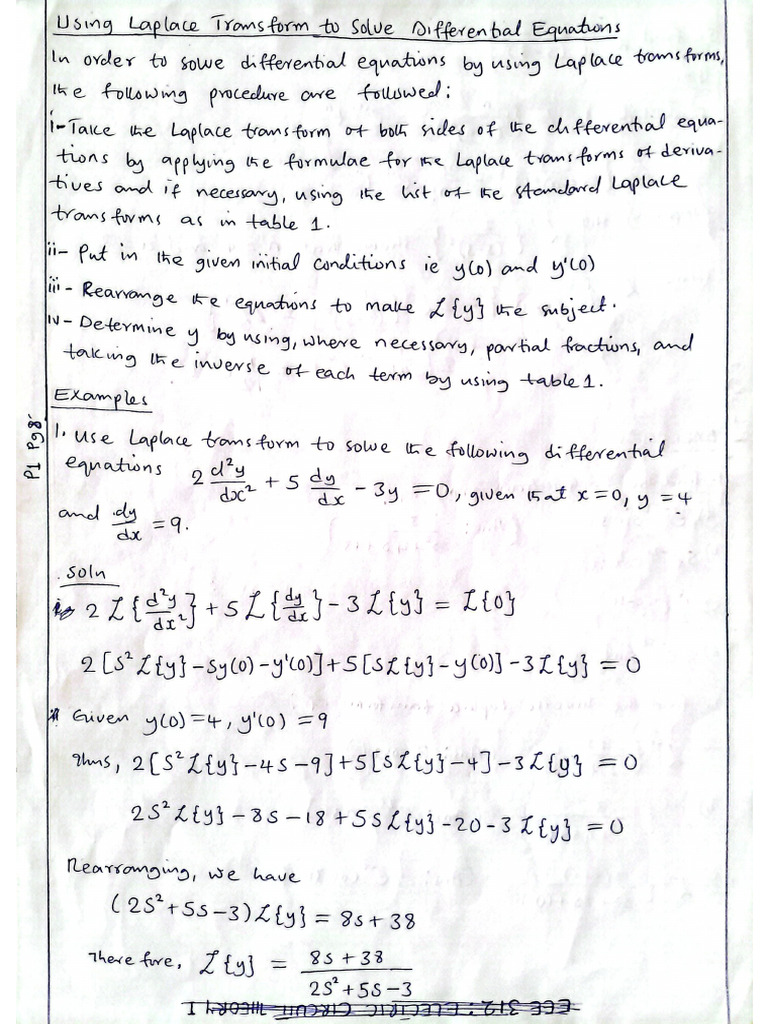 Using Laplace Transform to Solve Differential Equations
In order to solve differential equations by using Laplace transforms,
the following procedure are followed:
i- Take the Laplace transform of both sides of the differential equa-
tions by applying the formulae for the Laplace transforms of deriva-
tives and if necessary, using the list of the standard Laplace
transforms as in table 1.
ii- Put in the given initial conditions ie y(0) and y'(0)
iii- Rearrange the equations to make ℒ{y} the subject.
iv- Determine y by using, where necessary, partial fractions, and
taking the inverse of each term by using table 1.
Examples
P1 Pg8
1. Use Laplace transform to solve the following differential
equations 2 d²y/dx² + 5 dy/dx - 3y = 0, given that x=0, y=4
and dy/dx = 9.
Soln
2 ℒ{d²y/dx²} + 5 ℒ{dy/dx} - 3 ℒ{y} = ℒ{0}
2 [S² ℒ{y} - Sy(0) - y'(0)] + 5 [Sℒ{y} - y(0)] - 3ℒ{y} = 0
Given y(0)=4, y'(0) = 9
Thus, 2[S²ℒ{y} - 4s - 9] + 5[Sℒ{y} - 4] - 3ℒ{y} = 0
2S²ℒ{y} - 8s - 18 + 5sℒ{y} - 20 - 3ℒ{y} = 0
Rearranging, we have
(2S² + 5s - 3)ℒ{y} = 8s + 38
There fore, ℒ{y} = (8s + 38)/(2S² + 5s - 3)
ECE 312: ELECTRIC CIRCUIT THEORY I